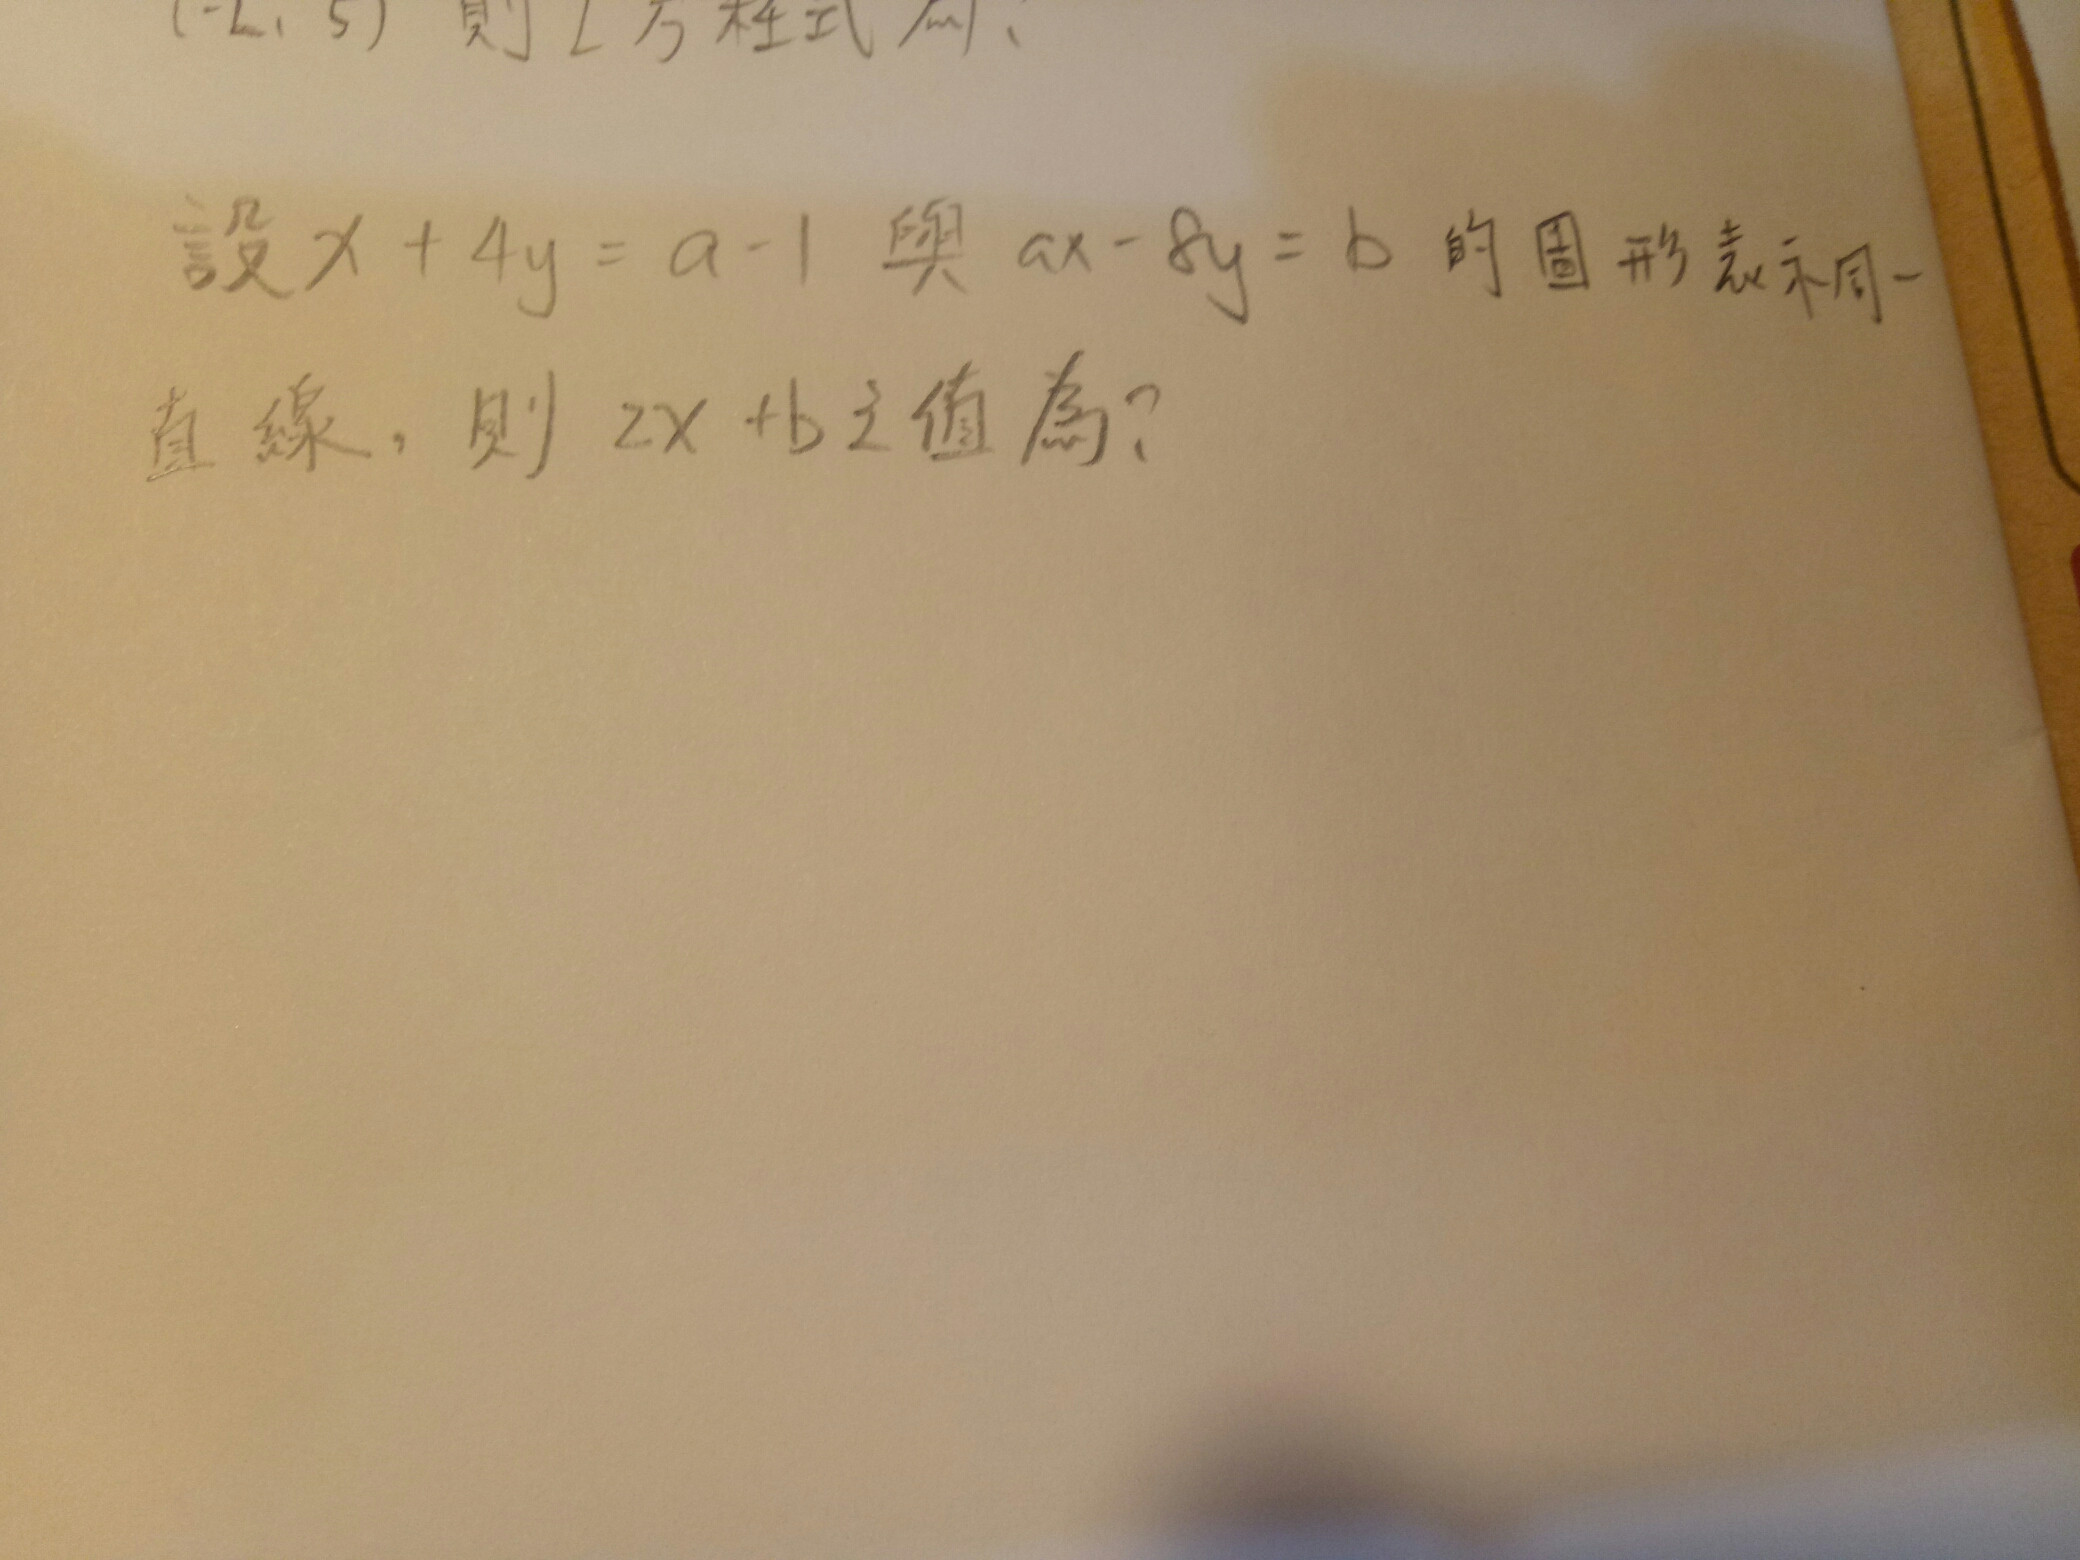 (-2, 5) 則L方程式為?
設x+4y=a-1 與 ax-8y=b 的圖形表示同一
直線，則 2x+b之值為?